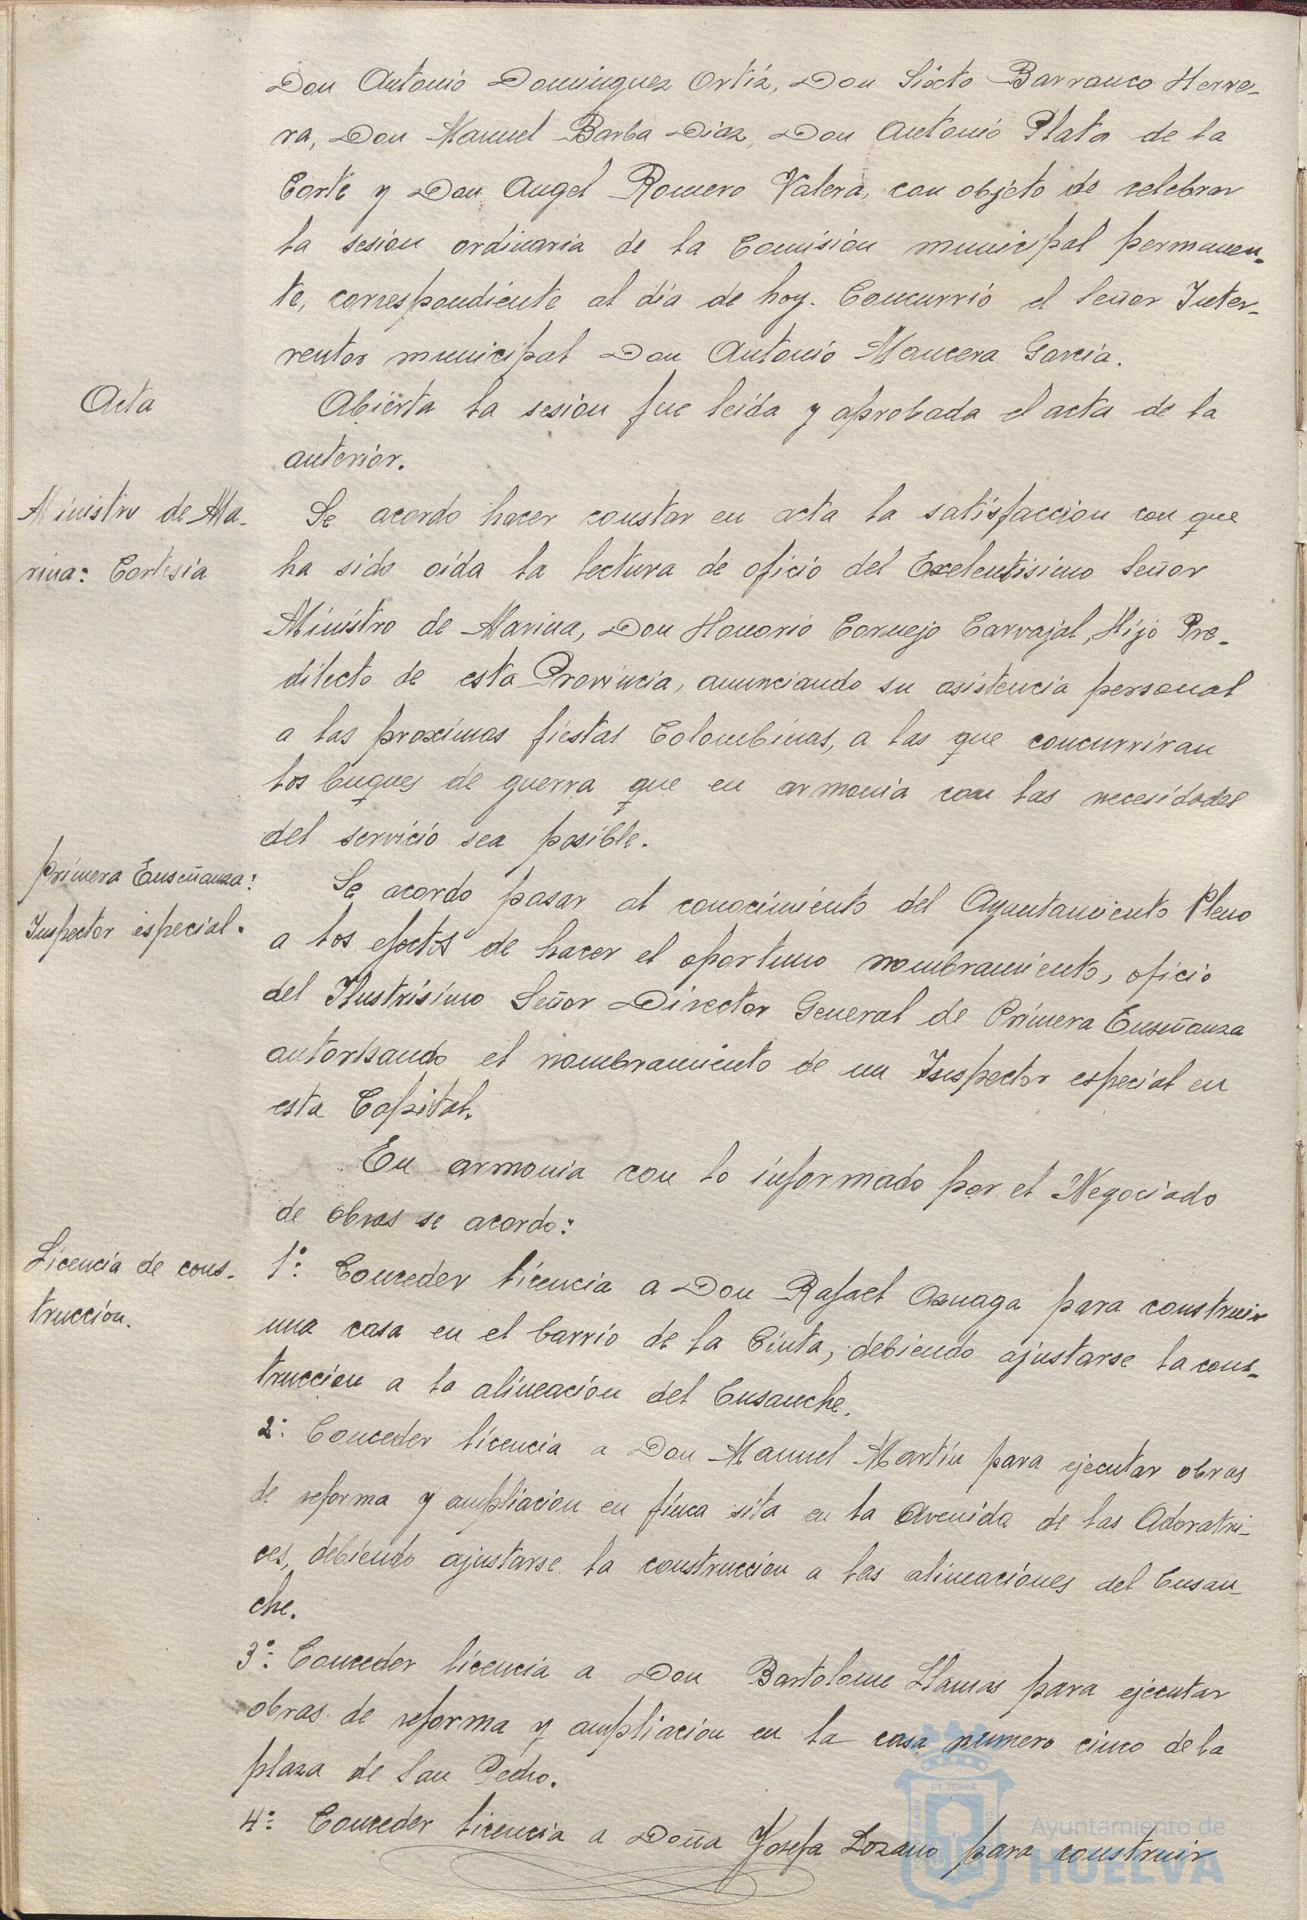 Don Antonio Dominguez Ortiz, Don Sixto Barranco Herre-
ra, Don Manuel Barba Diaz, Don Antonio Plata de la
Corte y Don Angel Romero Valera, con objeto de celebrar
la sesion ordinaria de la Comisión municipal permanen-
te, correspondiente al día de hoy. Concurrió el Señor Inter-
ventor municipal Don Antonio Mancera García.
Acta
Abierta la sesion fue leida y aprobada el acta de la
anterior.
Ministro de Ma-
rina: Cortesia
Se acordo hacer constar en acta la satisfaccion con que
ha sido oida la lectura de oficio del Exelentisimo Señor
Ministro de Marina, Don Honorio Cornejo Carvajal, Hijo Pre-
dilecto de esta Provincia, anunciando su asistencia personal
a las proximas fiestas Colombinas, a las que concurriran
los buques de guerra que en armonia con las necesidades
del servicio sea posible.
Primera Enseñanza:
Inspector especial.
Se acordo pasar al conocimiento del Ayuntamiento Pleno
a los efectos de hacer el oportuno nombramiento, oficio
del Ilustrisimo Señor Director General de Primera Enseñanza
autorisando el nombramiento de un Inspector especial en
esta Capital.
En armonia con lo informado por el Negociado
de obras se acordo:
Licencia de cons-
trucción.
1º: Conceder licencia a Don Rafael Asuaga para construir
una casa en el barrio de la Cinta, debiendo ajustarse la cons-
truccion a la alineacion del Ensanche.
2º: Conceder licencia a Don Manuel Martin para ejecutar obras
de reforma y ampliacion en finca sita en la Avenida de las Adoratri-
ces, debiendo ajustarse la construccion a las alineaciones del Ensan-
che.
3º: Conceder licencia a Don Bartolome Llamas para ejecutar
obras de reforma y ampliacion en la casa numero cinco de la
plaza de San Pedro.
4º: Conceder licencia a Doña Josefa Lozano para construir
Ayuntamiento de
HUELVA